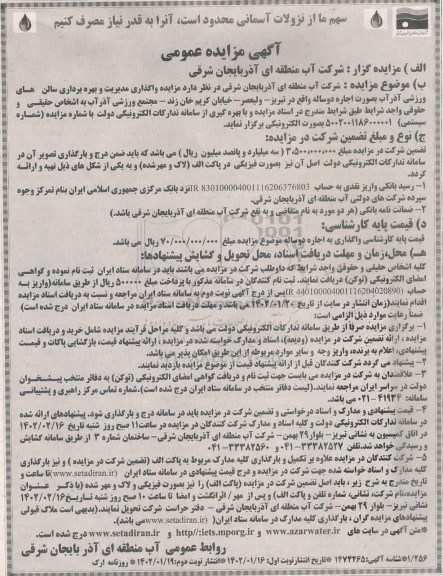 سهم ما از نزولات آسمانی محدود است، آنرا به قدر نیاز مصرف کنیم
آگهی مزایده عمومی
الف ) مزایده گزار : شرکت آب منطقه ای آذربایجان شرقی
ب) موضوع مزایده : شرکت آب منطقه ای آذربایجان شرقی در نظر دارد مزایده واگذاری مدیریت و بهره برداری سالن های
ورزشی آذرآب بصورت اجاره دوساله واقع در تبریز– ولیعصر– خیابان کریم خان زند – مجتمع ورزشی آذرآب به اشخاص حقیقی و
حقوقی واجد شرایط طبق شرایط مندرج در اسناد مزایده و با بهره گیری از سامانه تدارکات الکترونیکی دولت با شماره مزایده (شماره
سیستمی) بصورت الکترونیکی برگزار نماید.
ج) نوع و مبلغ تضمین شرکت در مزایده:
تضمین شرکت در مزایده مبلغ ۳،۵۰۰،۰۰۰،۰۰۰ (سه میلیارد و پانصد میلیون ریال) می باشد که باید ضمن درج و بارگذاری تصویر آن در
سامانه تدارکات الکترونیکی دولت اصل آن نیز بصورت فیزیکی در پاکت الف (لاک و مهرشده) و به یکی از شکل های ذیل تهیه و ارائه
گردد.
۱– رسید بانکی واریز نقدی به حساب IR 830100004001116206376803 نزد بانک مرکزی جمهوری اسلامی ایران بنام تمرکز وجوه
سپرده شرکت های دولتی آب منطقه ای آذربایجان شرقی.
۲– ضمانت نامه بانکی (هر دو مورد به نام متقاضی و به نفع شرکت آب منطقه ای آذربایجان شرقی باشد.)
د) قیمت پایه کارشناسی:
قیمت پایه کارشناسی واگذاری به اجاره دوساله موضوع مزایده مبلغ ۷۰/۰۰۰/۰۰۰/۰۰۰ ریال می باشد.
هـ) محل،زمان و مهلت دریافت اسناد، محل تحویل و گشایش پیشنهادها:
کلیه اشخاص حقیقی و حقوقی واجد شرایط که داوطلب شرکت در مزایده می باشند باید در سامانه ستاد ایران ثبت نام نموده و گواهی
امضای الکترونیکی (توکن) دریافت نمایند. ثبت نام کنندگان در سامانه مذکور با پرداخت مبلغ ۵۰۰۰۰۰ ریال از طریق سامانه (واریز به
حساب IR 440100004001116204020890) پس از درج آگهی نوبت دوم به سامانه ستاد ایران مراجعه و نسبت به دریافت اسناد مزایده
اقدام نمایند (زمان انتشار در سایت از تاریخ ۱۴۰۲/۰۱/۲۰ می باشد و مهلت دریافت اسناد مزایده در سامانه ستاد ایران درج شده است)
ضمنا رعایت موارد ذیل الزامی است:
۱– برگزاری مزایده صرفا از طریق سامانه تدارکات الکترونیکی دولت می باشد و کلیه مراحل فرآیند مزایده شامل خرید و دریافت اسناد
مزایده ، ارائه تضمین شرکت در مزایده (ودیعه)، اسناد و مدارک خواسته شده در مزایده ، ارائه پیشنهاد قیمت، بازگشایی پاکات و قیمت
پیشنهادی، اعلام به برنده، واریز وجه و سایر موارد مربوطه از این طریق امکان پذیر می باشد.
۲– پیشنهاد می گردد شرکت کنندگان قبل از ارائه پیشنهاد قیمت از موضوع مزایده بازدید نمایند.
۳– علاقمندان به شرکت در مزایده می بایست جهت ثبت نام و دریافت گواهی امضای الکترونیکی (توکن) به دفاتر منتخب پیشخوان
دولت در سراسر ایران مراجعه نمایند.(لیست دفاتر منتخب در سامانه ستاد ایران درج شده است.شماره تماس مرکز راهبری و پشتیبانی
سامانه: ۴۱۹۳۴–۰۲۱ می باشد.
۴– قیمت پیشنهادی و مدارک و اسناد درخواستی و تضمین شرکت در مزایده باید در سامانه درج و بارگذاری شود. پیشنهادهای ارائه شده
در سامانه تدارکاتی الکترونیکی دولت و کلیه اسناد و مدارک شرکت کنندگان در مزایده در ساعت۱۱ صبح روز شنبه تاریخ ۱۴۰۲/۰۲/۱۶
در اتاق کمیسیون به نشانی تبریز– بلوار ۲۹ بهمن– شرکت آب منطقه ای آذربایجان شرقی– ساختمان شماره ۳ از طریق سامانه گشایش
و رسیدگی خواهد شد.تلفن ۳۳۳۸۲۵۲۷–۰۴۱ و ۳۳۳۸۲۵۶۰–۰۴۱
۵– شرکت کنندگان در مزایده علاوه بر تکمیل و بارگذاری کلیه مدارک مربوط به پاکت الف (تضمین شرکت در مزایده) و نیز بارگذاری
کلیه مدارک و اسناد خواسته شده جهت شرکت در مزایده و درج قیمت پیشنهادی در سامانه ستاد ایران (www.setadiran.ir) تا ساعت و
تاریخ مندرج به شرح زیر ، باید اصل تضمین شرکت در مزایده (پاکت الف) را نیز بصورت فیزیکی و لاک و مهر شده (با ذکر عنوان
مزایده،نام شرکت، نشانی، شماره تلفن و پاکت الف) و پس از مهر/ اثرانگشت و امضا تا ساعت ۱۰ صبح روز شنبه تاریخ ۱۴۰۲/۰۲/۱۶ به
نشانی تبریز– بلوار ۲۹ بهمن– شرکت آب منطقه ای آذربایجان شرقی – دفتر حراست شرکت تحویل نمایند.(بدیهی است ملاک قبولی
پیشنهادهای مزایده گران ، بارگذاری کلیه مدارک در سامانه ستاد ایران( www.setadiran.ir)می باشد.).
متن آگهی در سایت های www.azarwater.ir و http://iets.mporg.ir و www.setadiran.ir درج شده است.
روابط عمومی آب منطقه ای آذربایجان شرقی
۱/۲۵۶ شناسه آگهی:۱۴۷۴۲۶۵ تاریخ انتشار نوبت اول: ۱۴۰۲/۰۱/۱۶ انتشار نوبت دوم:۱۴۰۲/۰۱/۱۹ روزنامه ارک